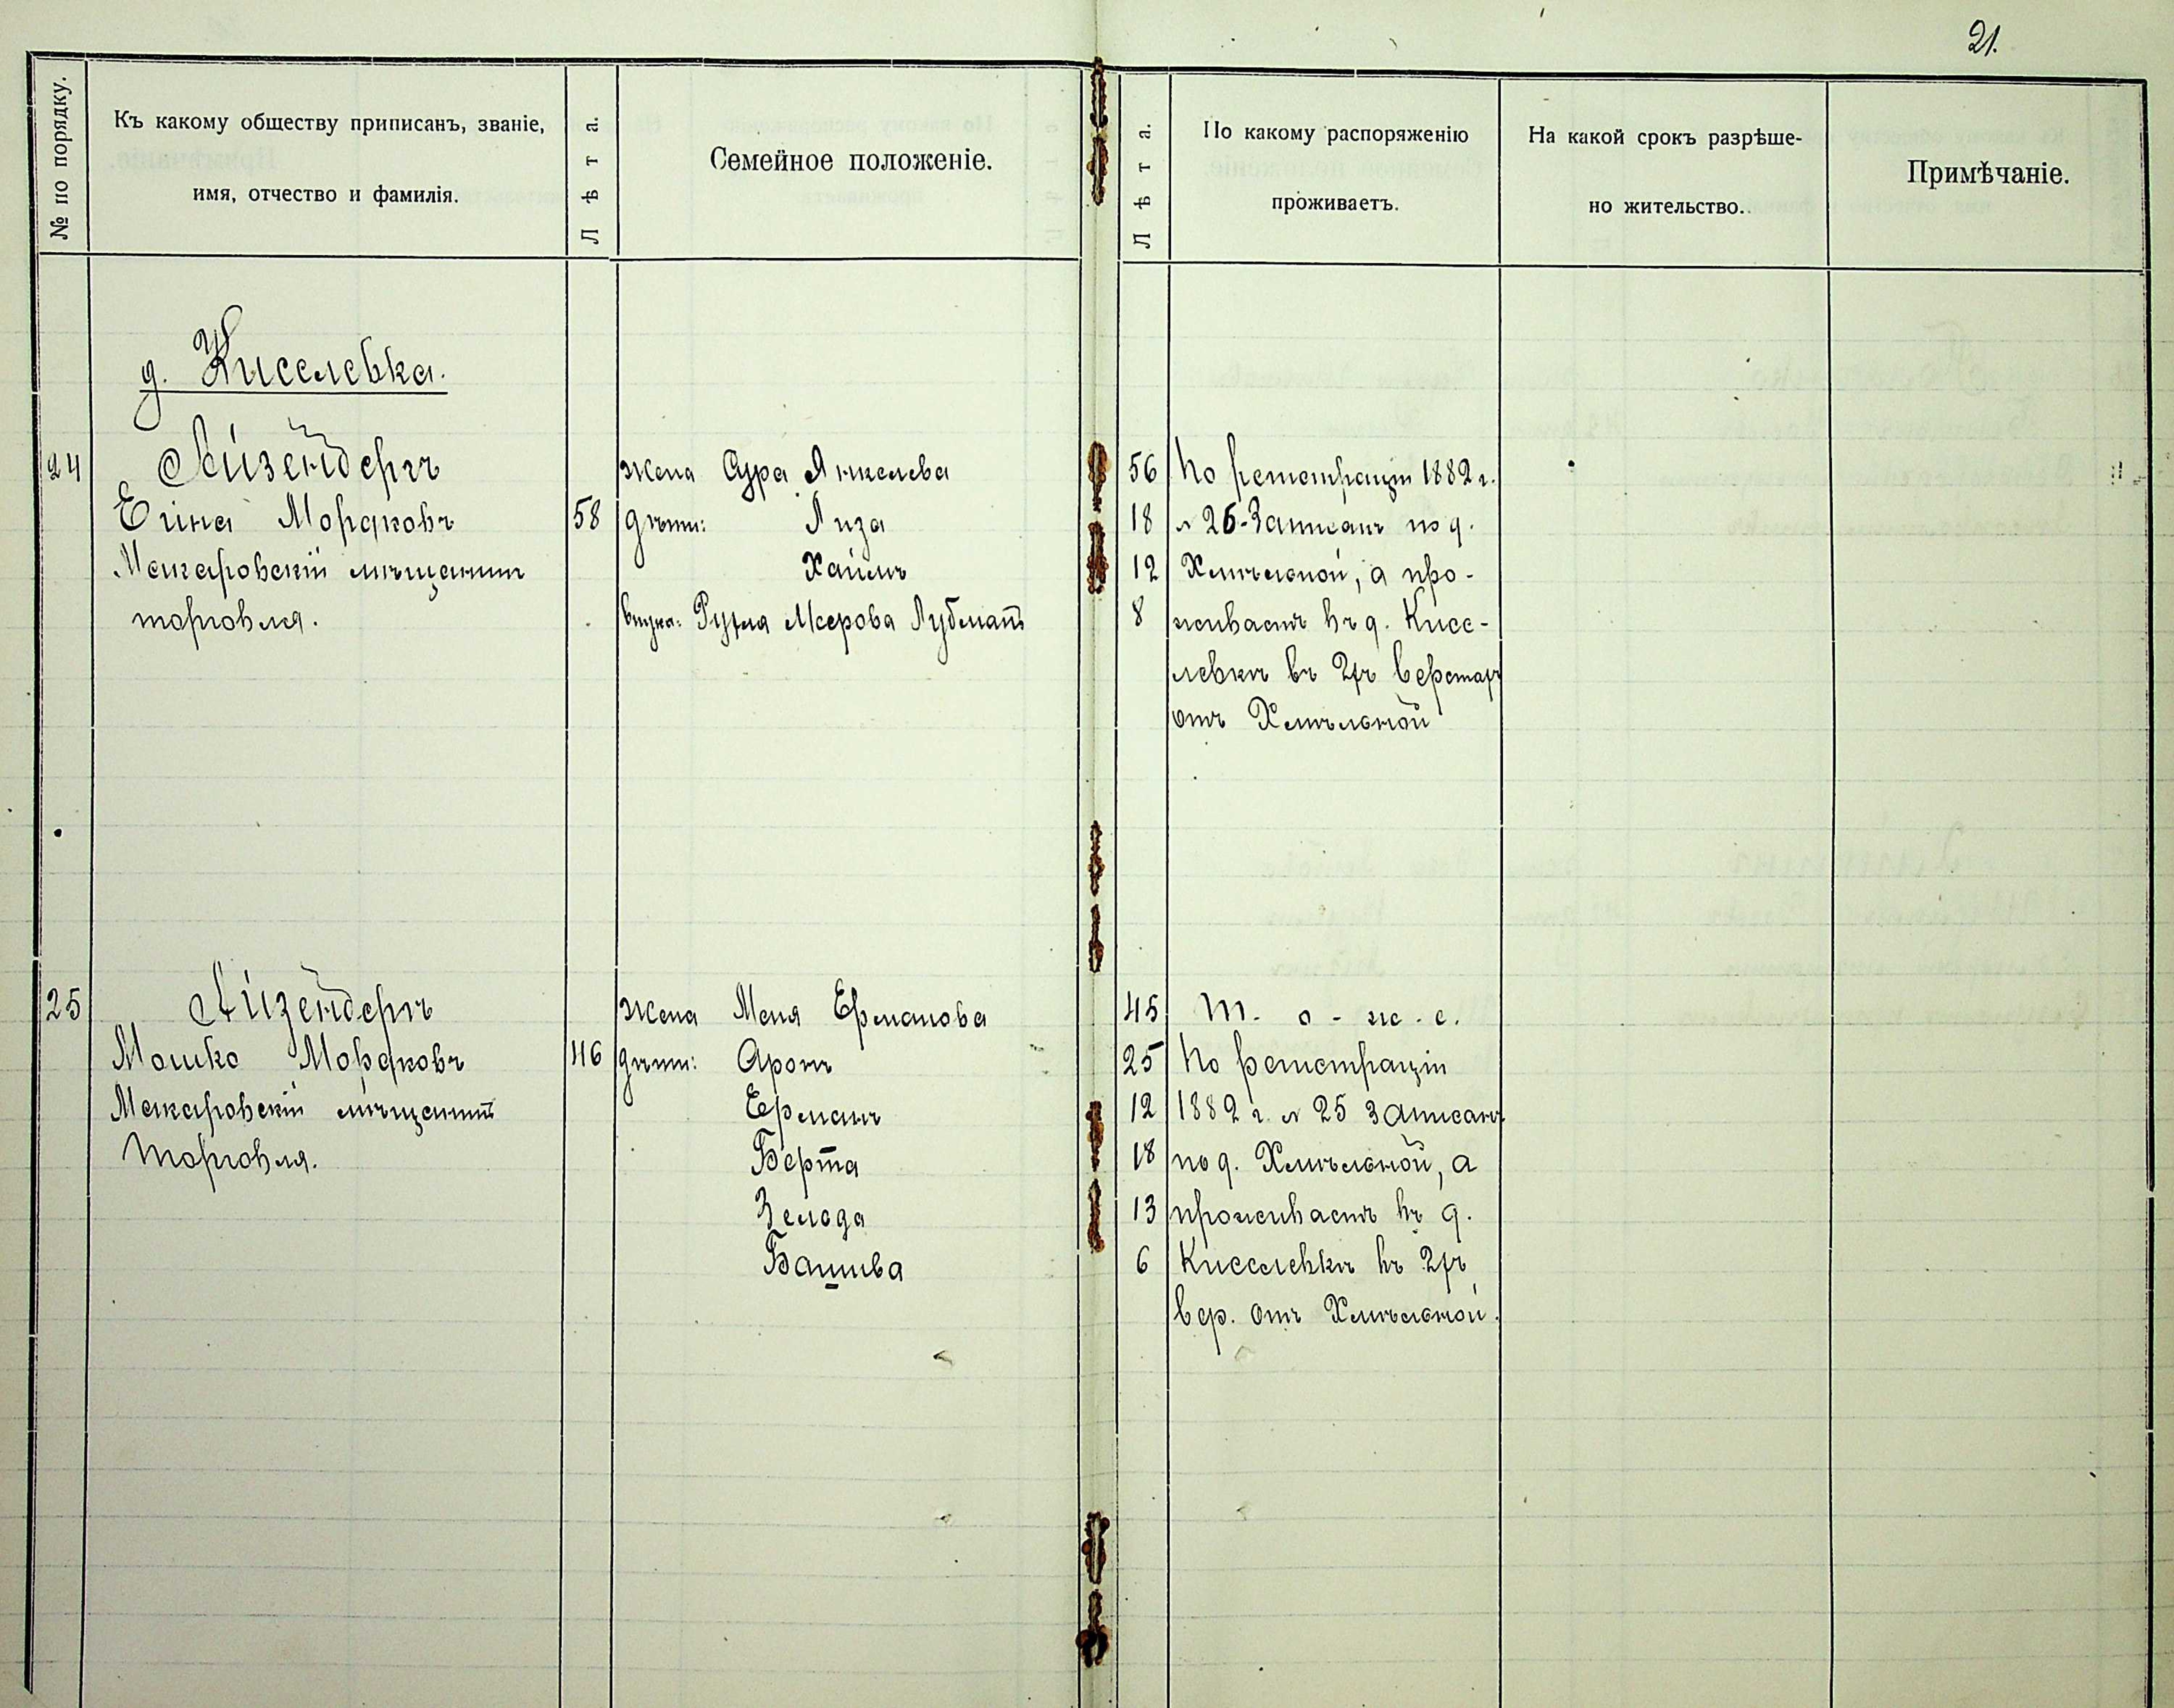 21.
№ по порядку.
Къ какому обществу приписанъ, званіе,
имя, отчество и фамилія.
Лѣта.
Семейное положеніе.
Лѣта.
По какому распоряженію
проживаетъ.
На какой срокъ разрѣше-
но жительство.
Примѣчаніе.
д. Киселевка.
24 Айзенбергъ жена Сура Янкелева 56 По регистраціи 1882 г.
Мордковъ 58 дѣти: Лиза 18 № 26 Записанъ по д.
Макаровскій мѣщанинъ Хаимъ 12 Хмѣльной, а про-
торговля. внука: Мееровa 8 живаетъ въ д. Кисе-
левкѣ въ 2хъ верстахъ
отъ Хмѣльной
25 Айзенбергъ жена Меня Ерманова 45 Т. о - ж. е.
Мошко Мордковъ 46 дѣти: Аронъ 25 По регистраціи
Макаровскій мѣщанинъ Ерманъ 12 1882 г. № 25 записанъ
торговля. Берта 18 по д. Хмѣльной, а
Зелода 13 проживаетъ въ д.
Башива 6 Киселевкѣ въ 2хъ
вер. отъ Хмѣльной.